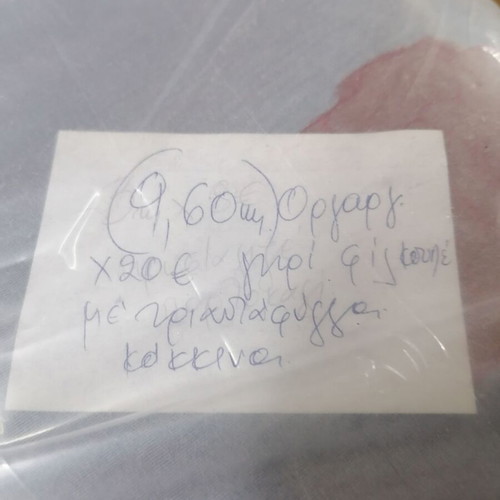 (9,60m) Οργαργ.
x20€ γκρί φίλ κουπέ
μέ τριαντάφυλλα
κόκκινα